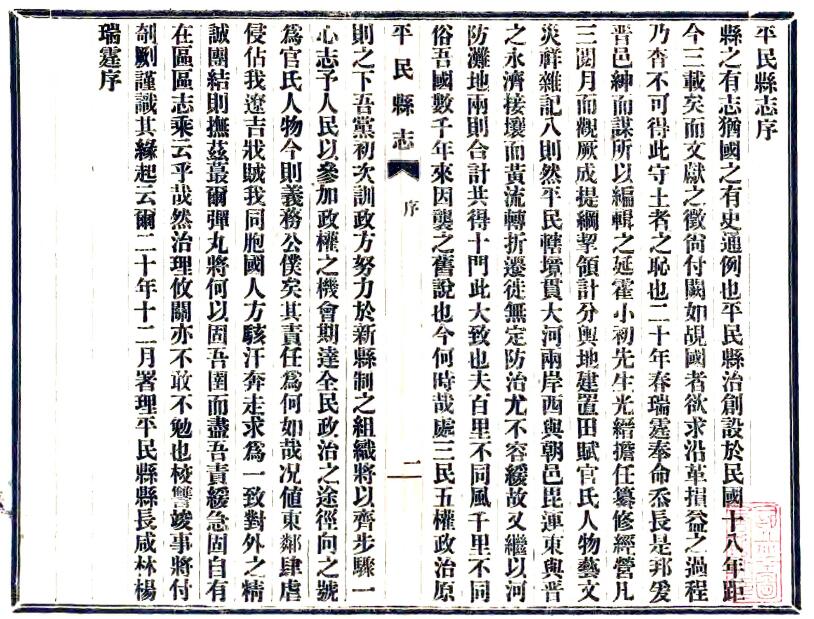 平民縣志序
縣之有志猶國之有史通例也平民縣治創設於民國十八年距
今三載矣而文獻之徵尙付闕如覘國者欲求沿革損益之過程
乃杳不可得此守土者之恥也二十年春瑞霆奉命忝長是邦爰
晋邑紳而謀所以編輯之延霍小初先生光縉擔任纂修經營凡
三閱月而觀厥成提綱挈領計分輿地建置田賦官氏人物藝文
災祥雜記八則然平民轄境貫大河兩岸西與朝邑毘連東與晋
之永濟接壤而黃流轉折遷徙無定防治尤不容緩故又繼以河
防灘地兩則合計共得十門此大致也夫百里不同風千里不同
俗吾國數千年來因襲之舊說也今何時哉處三民五權政治原
平民縣志
序
二
則之下吾黨初次訓政方努力於新縣制之組織將以齊步驟一
心志予人民以參加政權之機會期達全民政治之途徑向之號
爲官氏人物今則義務公僕矣其責任爲何如哉况値東鄰肆虐
侵佔我遼吉戕賊我同胞國人方駭汗奔走求爲一致對外之精
誠團結則撫茲蕞爾彈丸將何以固吾圉而盡吾責緩急固自有
在區區志乘云乎哉然治理攸關亦不敢不勉也校讐竣事將付
剞劂謹識其緣起云爾二十年十二月署理平民縣縣長咸林楊
瑞霆序